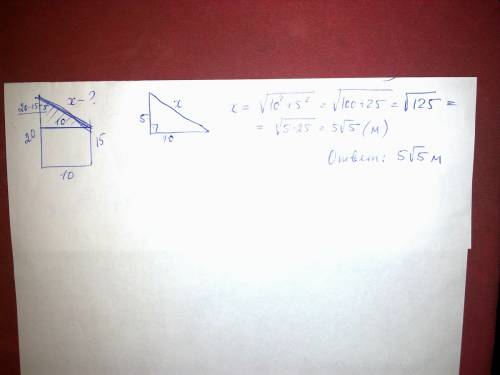 20-15=5
x - ?
10
20
15
10
5
x
10
x = √10² + 5² = √100 + 25 = √125 =
= √5·25 = 5√5 (м)
Ответ: 5√5 м